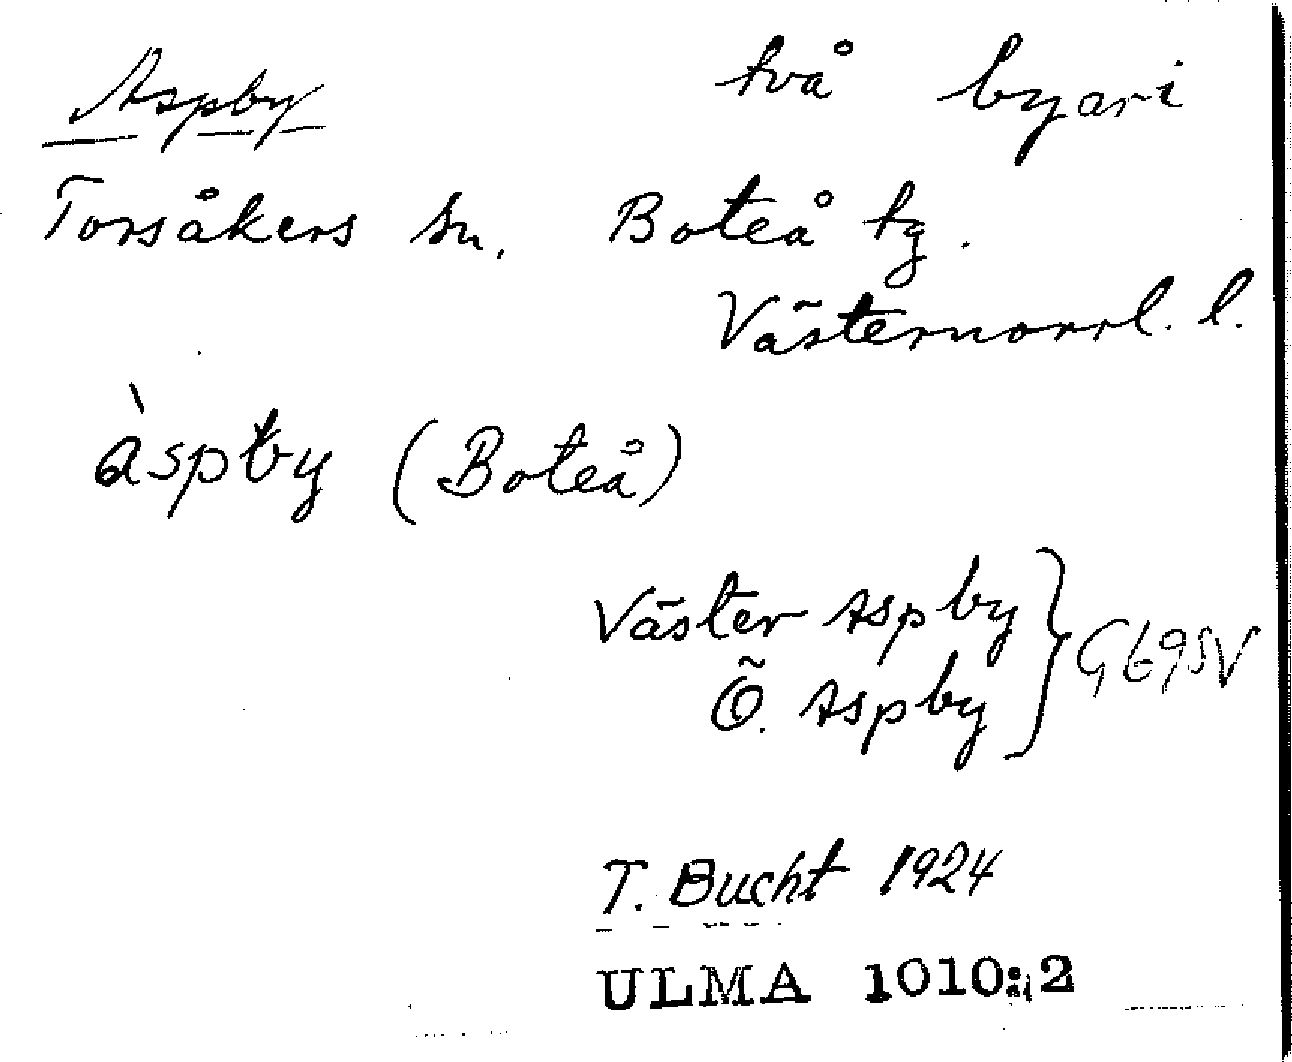 Aspby två byar i
Torsåkers sn. Boteå tg.
Västernorrl. l.
àspby (Boteå)
Väster Aspby
Ö. Aspby } G69SV
T. Bucht 1924
ULMA 1010:2